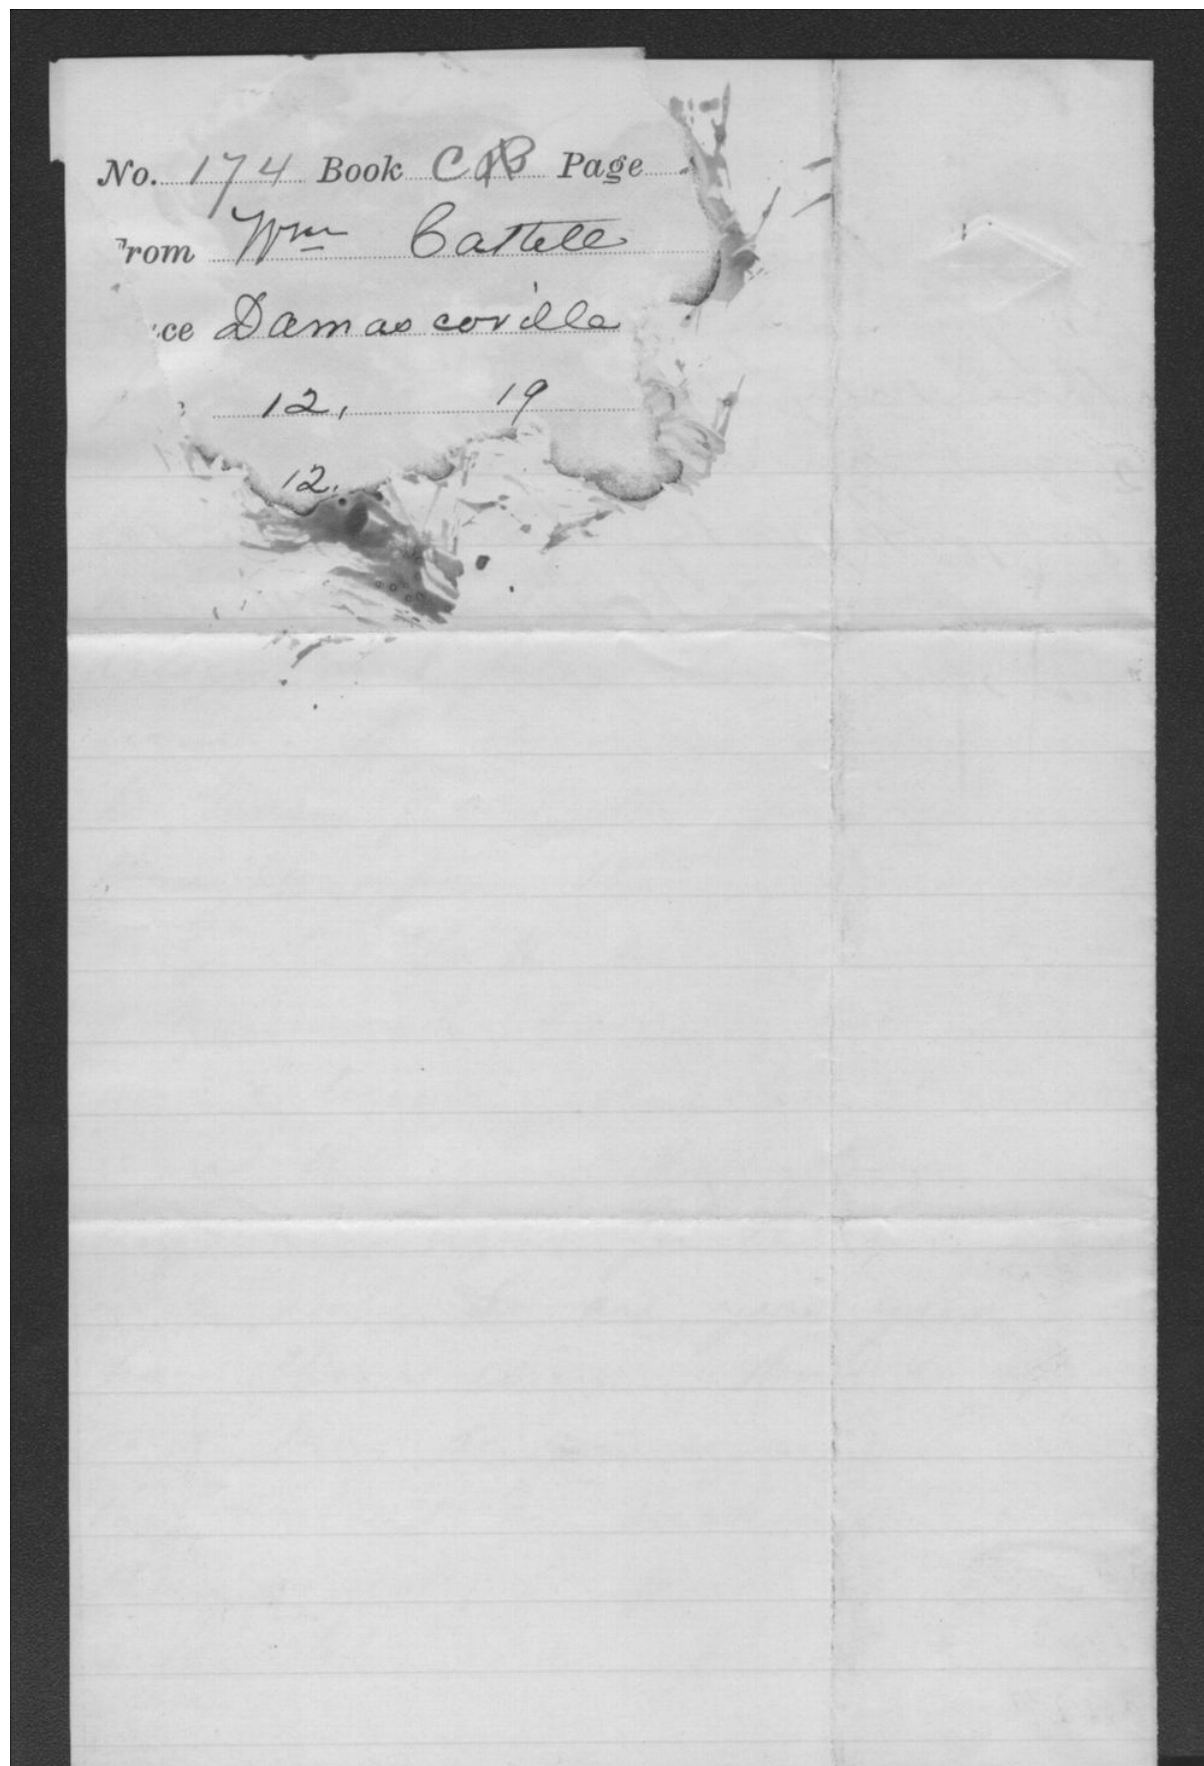 No. 174 Book C B Page
From Wm Cattell
ce Damascoville
12, 19
12.